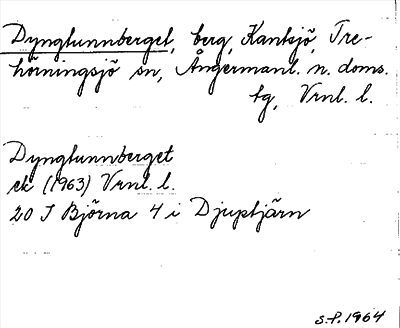 Dyngtunnberget, berg, Kantsjö, Tre-
hörningsjö sn, Ångermanl. n. doms.
tg, Vrnl. l.
Dyngtunnberget
ek (1963) Vrnl. l.
20 J Björna 4 i Djuptjärn
S.P. 1964